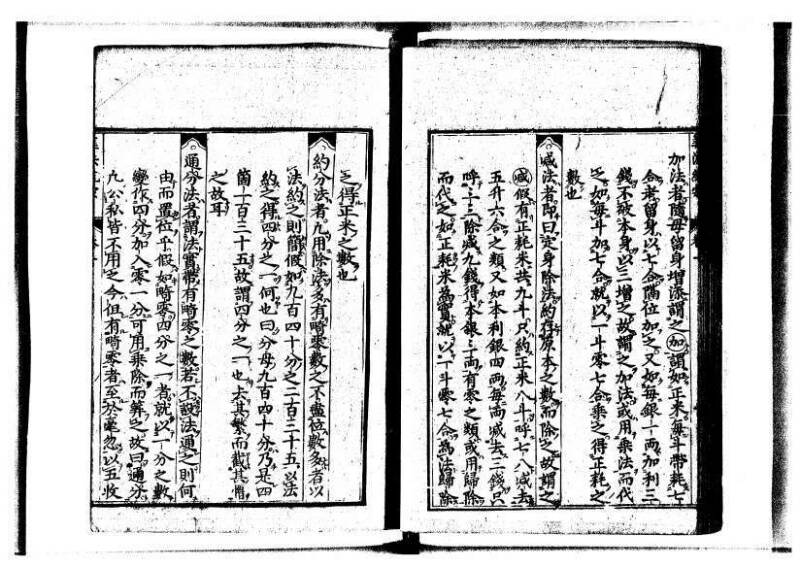 加法者隨母留身增添謂之加謂如正米每斗帶耗七
合者留身以七合隔位加之又如每銀一兩加利三
錢不破本身以三增之故謂之加法或用乘法而代
之如每斗加七合就以一斗零七合乘之得正耗之
數也
減法者即曰定身除法約存原本之數而除之故謂之
減假有正耗米共九斗只約正米八斗呼七八減去
五升六合之類又如本利銀四兩每兩減去二錢只
呼二三除減九錢得本銀三兩有零之類或用歸除
而代之如正耗米為實就以一斗零七合為法歸除
之得正米之數也
約分法者九用除法多有畸零數之不盡位數多者以
法約之則簡假如九百四十分之二百三十五以法
約之得四分之一何也曰分母九百四十分乃是四
箇二百三十五故謂四分之一也去其繁而截其
之故耳
通分法者謂法實帶有畸零之數若不設法通之則何
由而置位乎假如畸零四分之一者就以一分之數
變作四分加入零一分可用乘除而筭之故曰通分
九公私皆不用之今但有畸零者至於毫忽以五收